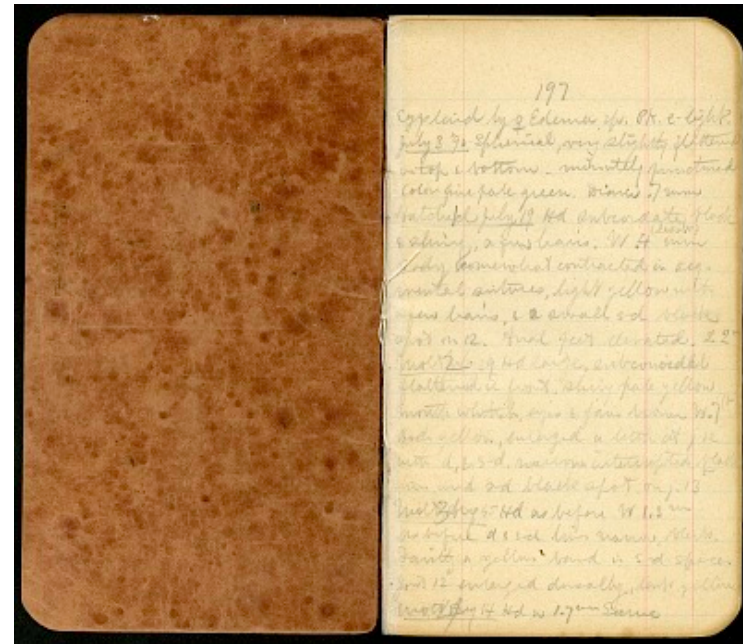 197
Eggs laid by ♀ Edema sp. Pk. e-light
July 8 90. Spherical, very slightly flattened
on top & bottom - minutely punctured
Color fine pale green. Diam. .7 mm
Hatched July 19 Hd subcordate, black
shiny, a few hairs. W .4 mm
body somewhat contracted in seg-
mental sutures, light yellow with
a few hairs, & a small s-d black
spot on 12. Anal feet elevated.
Molt 29 Hd large,
flattened in front, shiny pale yellow
mouth whitish, eyes & jaws brown W. .7
Body yellow, enlarged a little at
with d, & s-d narrow interrupted black
lines and s-d black spot on j. 13
Molt Hd as before W 1.3 mm
as before d & s-d lines narrow, black.
Faintly a yellow band in s-d space.
Joint 12 enlarged dorsally, dark yellow
Molt Aug 14 Hd w 1.7 mm Same